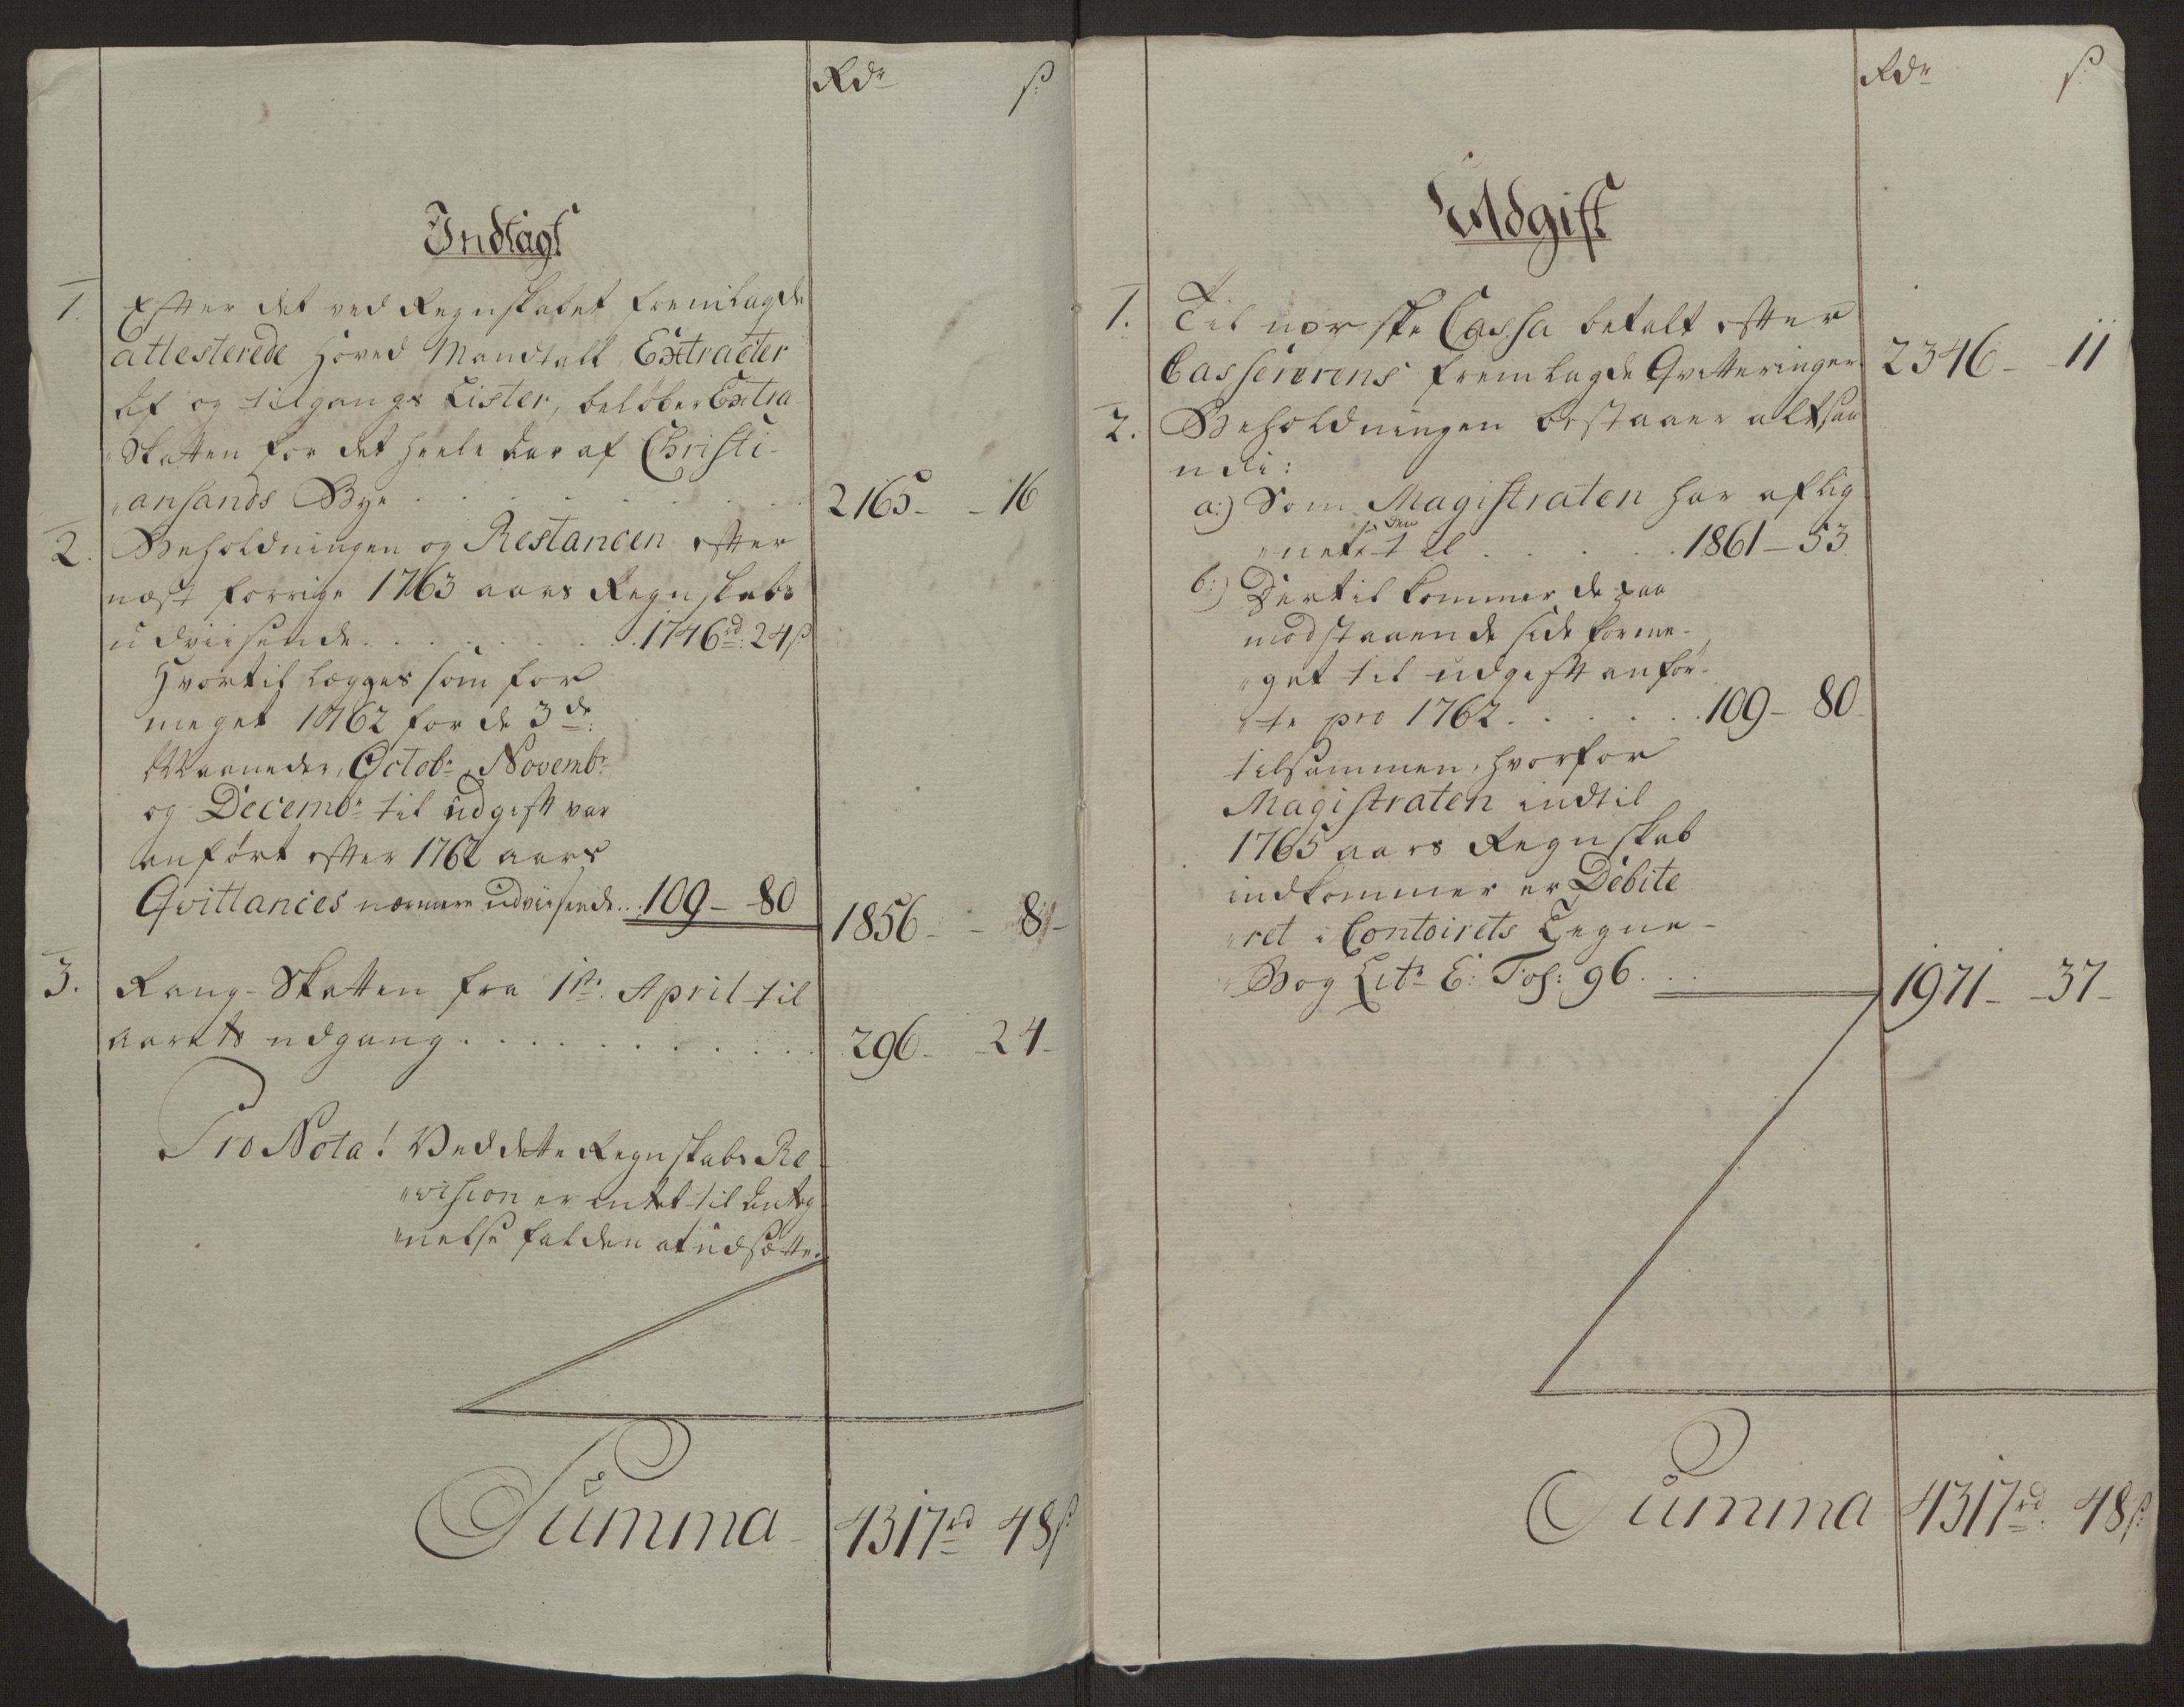 Rdr ß
Indtægt
1. Efter det ved Regnskabet fremlagde
attesterede Hoved Mandtall, Extracter
Af og tilgangs Lister, beløber Extra
"Skatten for det heele Aar af Christi-
"ansands Bye . . . . . . . 2165 - - 16
2. Beholdningen og Restancen efter
næst forrige 1763 aars Regnskabs
udviisende . . . . . . 1746rd: 24ß
Hvortil lægges som for
meget 1762 for de 3de:
Maaneder, Octobr, Novembr
og Decembr til udgift var
anført efter 1762 aars
Qvittancies nærmere udviisende . . 109 - 80 1856 - - 8 -
3. Rang-Skatten fra 1ste April til
aarets udgang . . . . . . . . 296 - - 24 -
Pro Nota! Ved dette Regnskabs Re-
"vision er intet til Anteg
"nelse falden at udsætte.
Summa - 4317rd 48ß
Rdr ß
Udgift
1. Til norske Cassa betalt efter
Cassererens fremlagde Qvitteringer 2346 - - 11
2. Beholdningen bestaaer altsaa
udi:
a:) Som Magistraten har aflig
siden
"net til . . . . . 1861 - 53
b:) Dertil kommer de paa
modstaaende side forme-
"get til udgift anfør-
"te pro 1762 . . . . . . 109 - 80 -
tilsammen, hvorfor
Magistraten indtil
1765 aars Regnskab
indkommer er Debite
"ret i Contoirets Tegne-
"Bog Litr E: Fol: 96 . . . 1971 - - 37 -
Summa 4317rd: 48ß